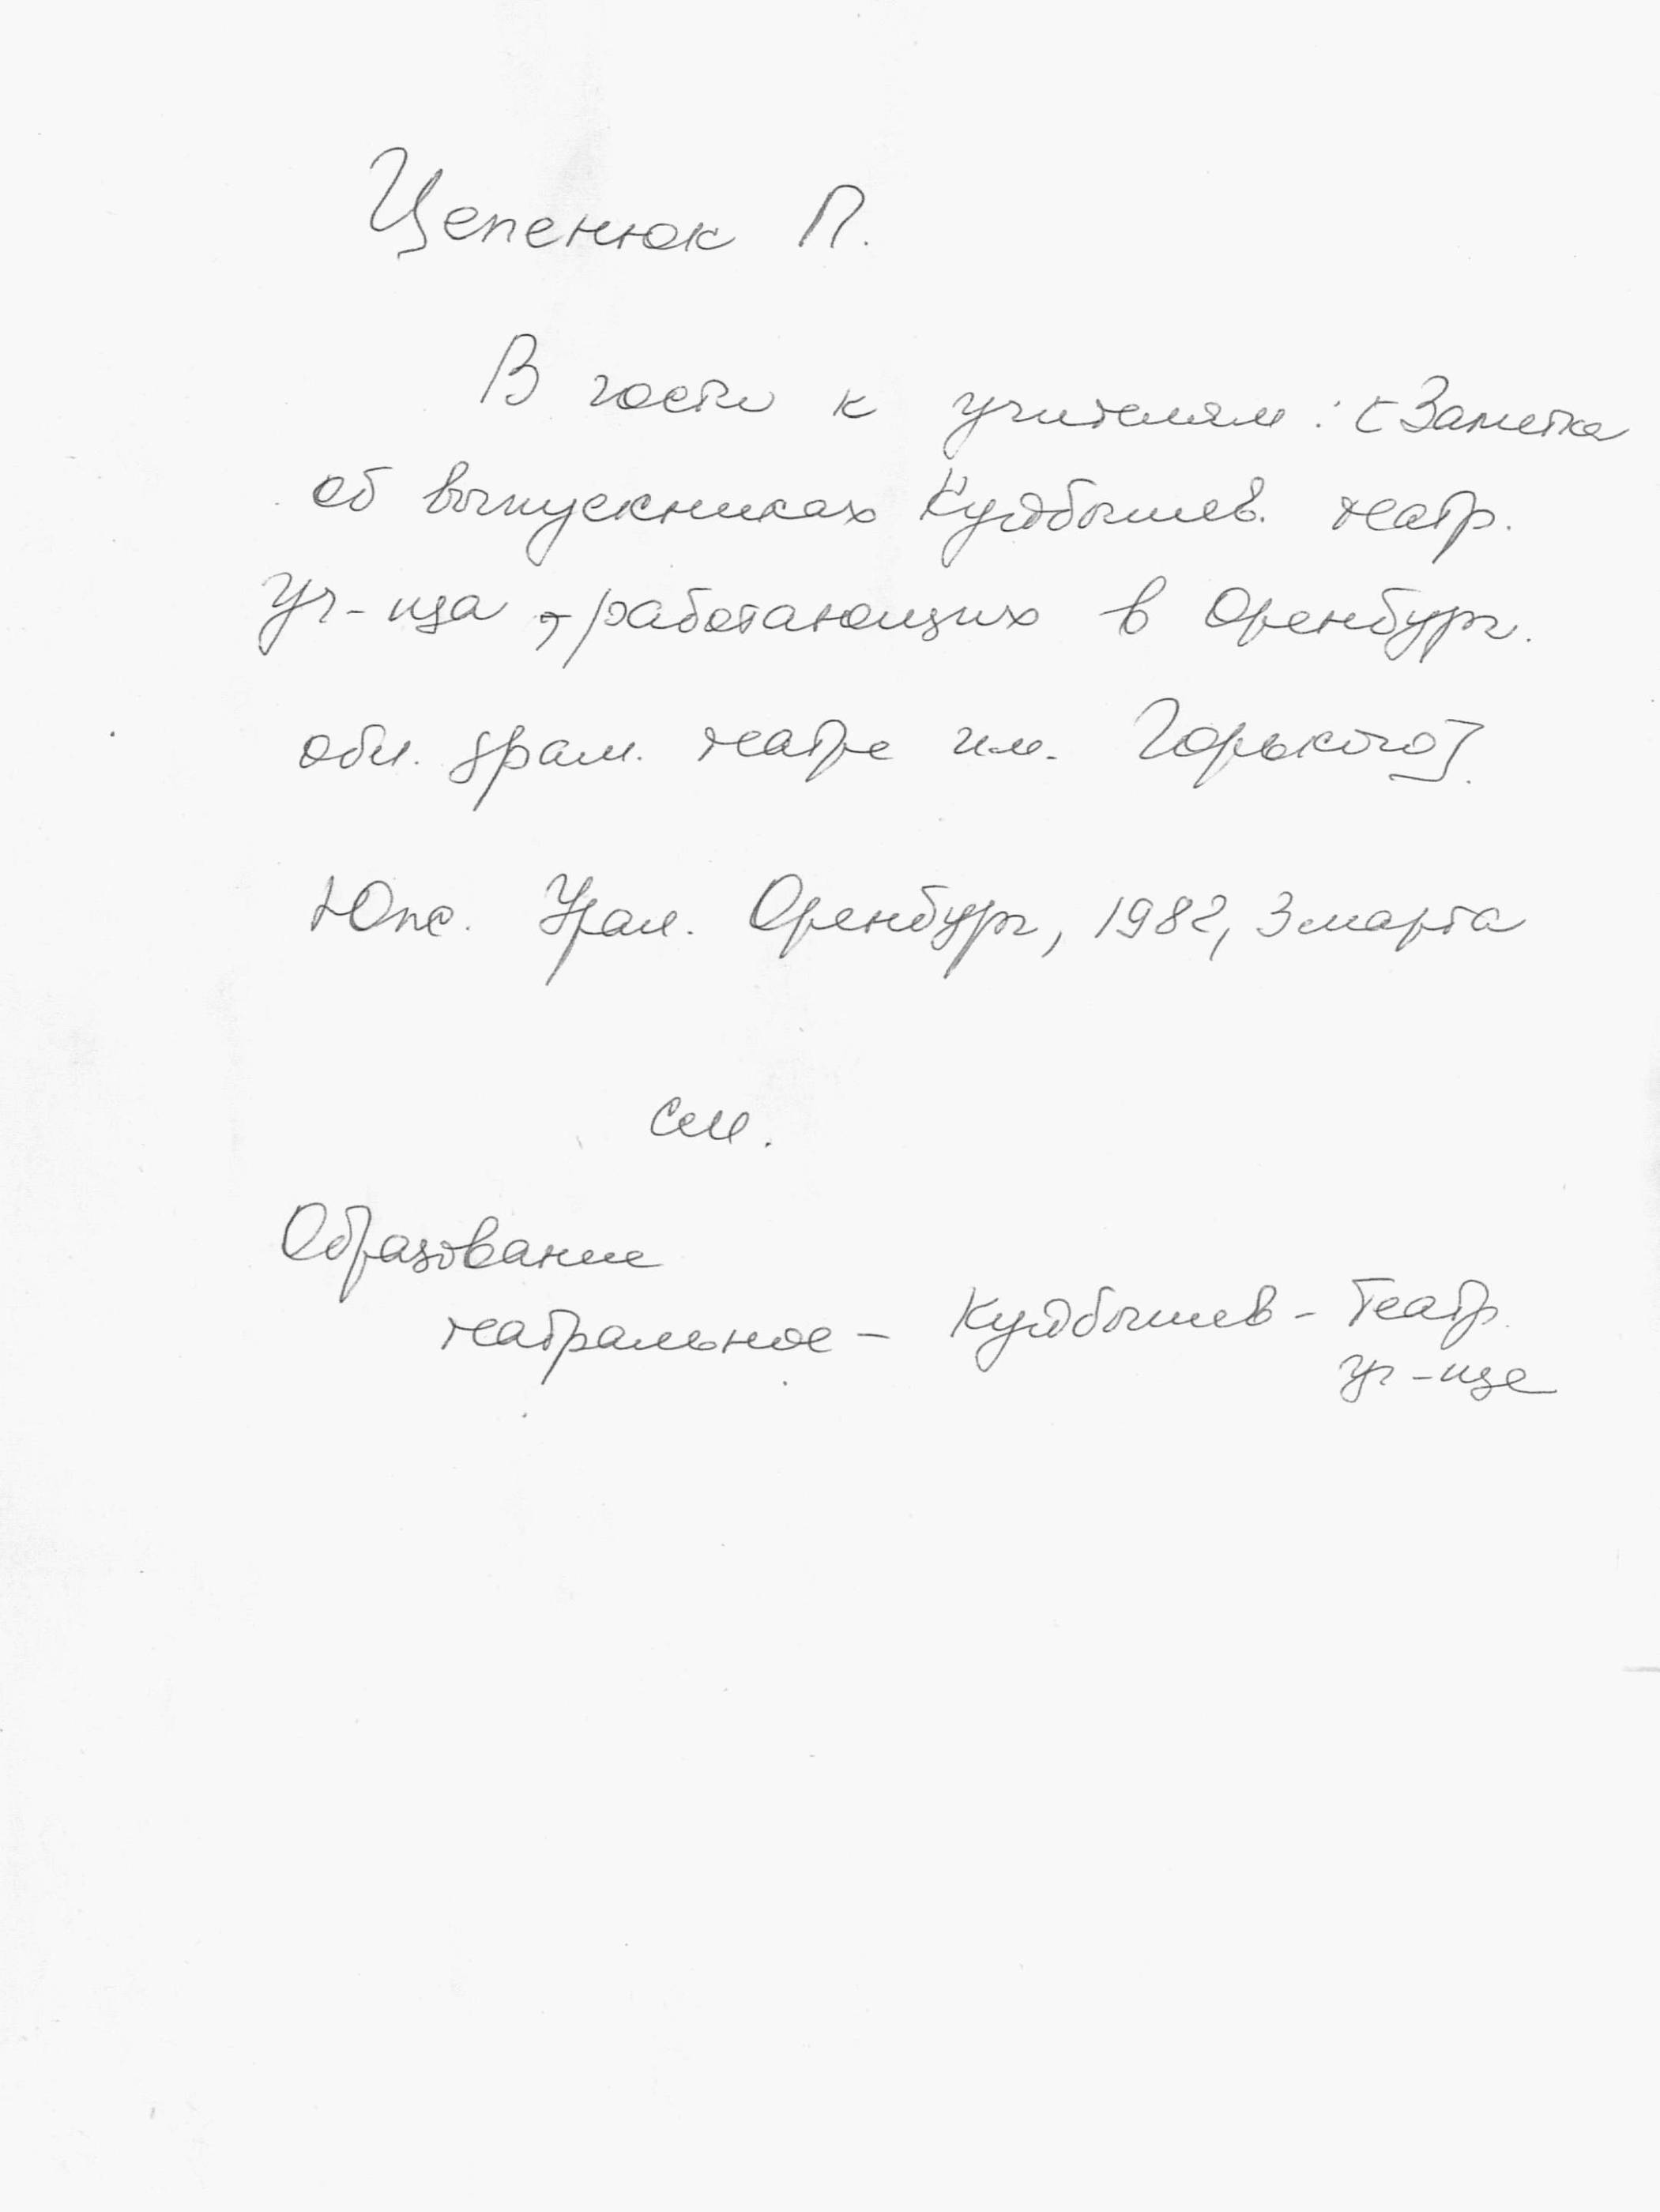 Цепенюк П.
В гости к учителям: [Заметка
об выпускниках Куйбышев. театр.
уч-ща, работающих в Оренбург.
обл. драм. театре им. Горького].
Юж. Урал. Оренбург, 1982, 3 марта
см.
Образование
театральное - Куйбышев - Театр.
уч-ще